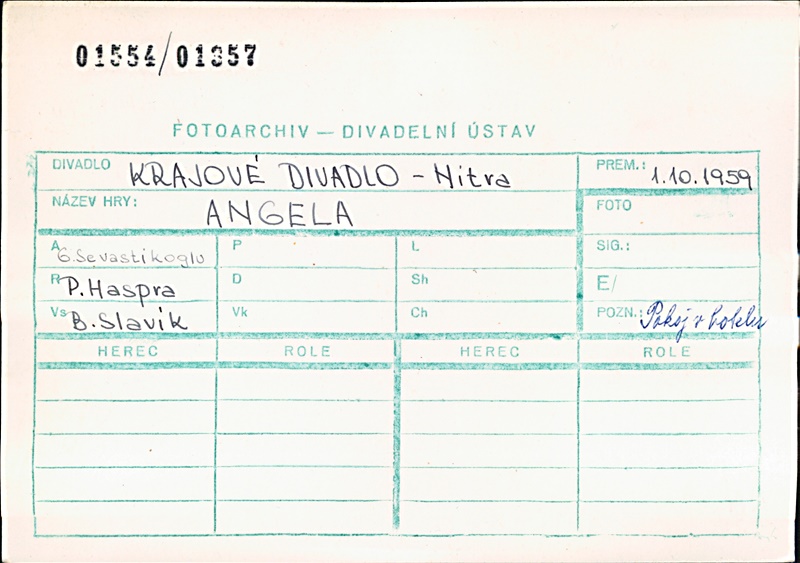 01554/01357
FOTOARCHIV — DIVADELNÍ ÚSTAV
DIVADLO KRAJOVÉ DIVADLO - Nitra
PREM.: 1.10.1959
NÁZEV HRY: ANGELA
FOTO
A G.Sevastikoglu
P
L
SIG.:
R P.Haspra
D
Sh
E/
Vs B.Slavík
Vk
Ch
POZN.: Pokoj v
HEREC ROLE HEREC ROLE